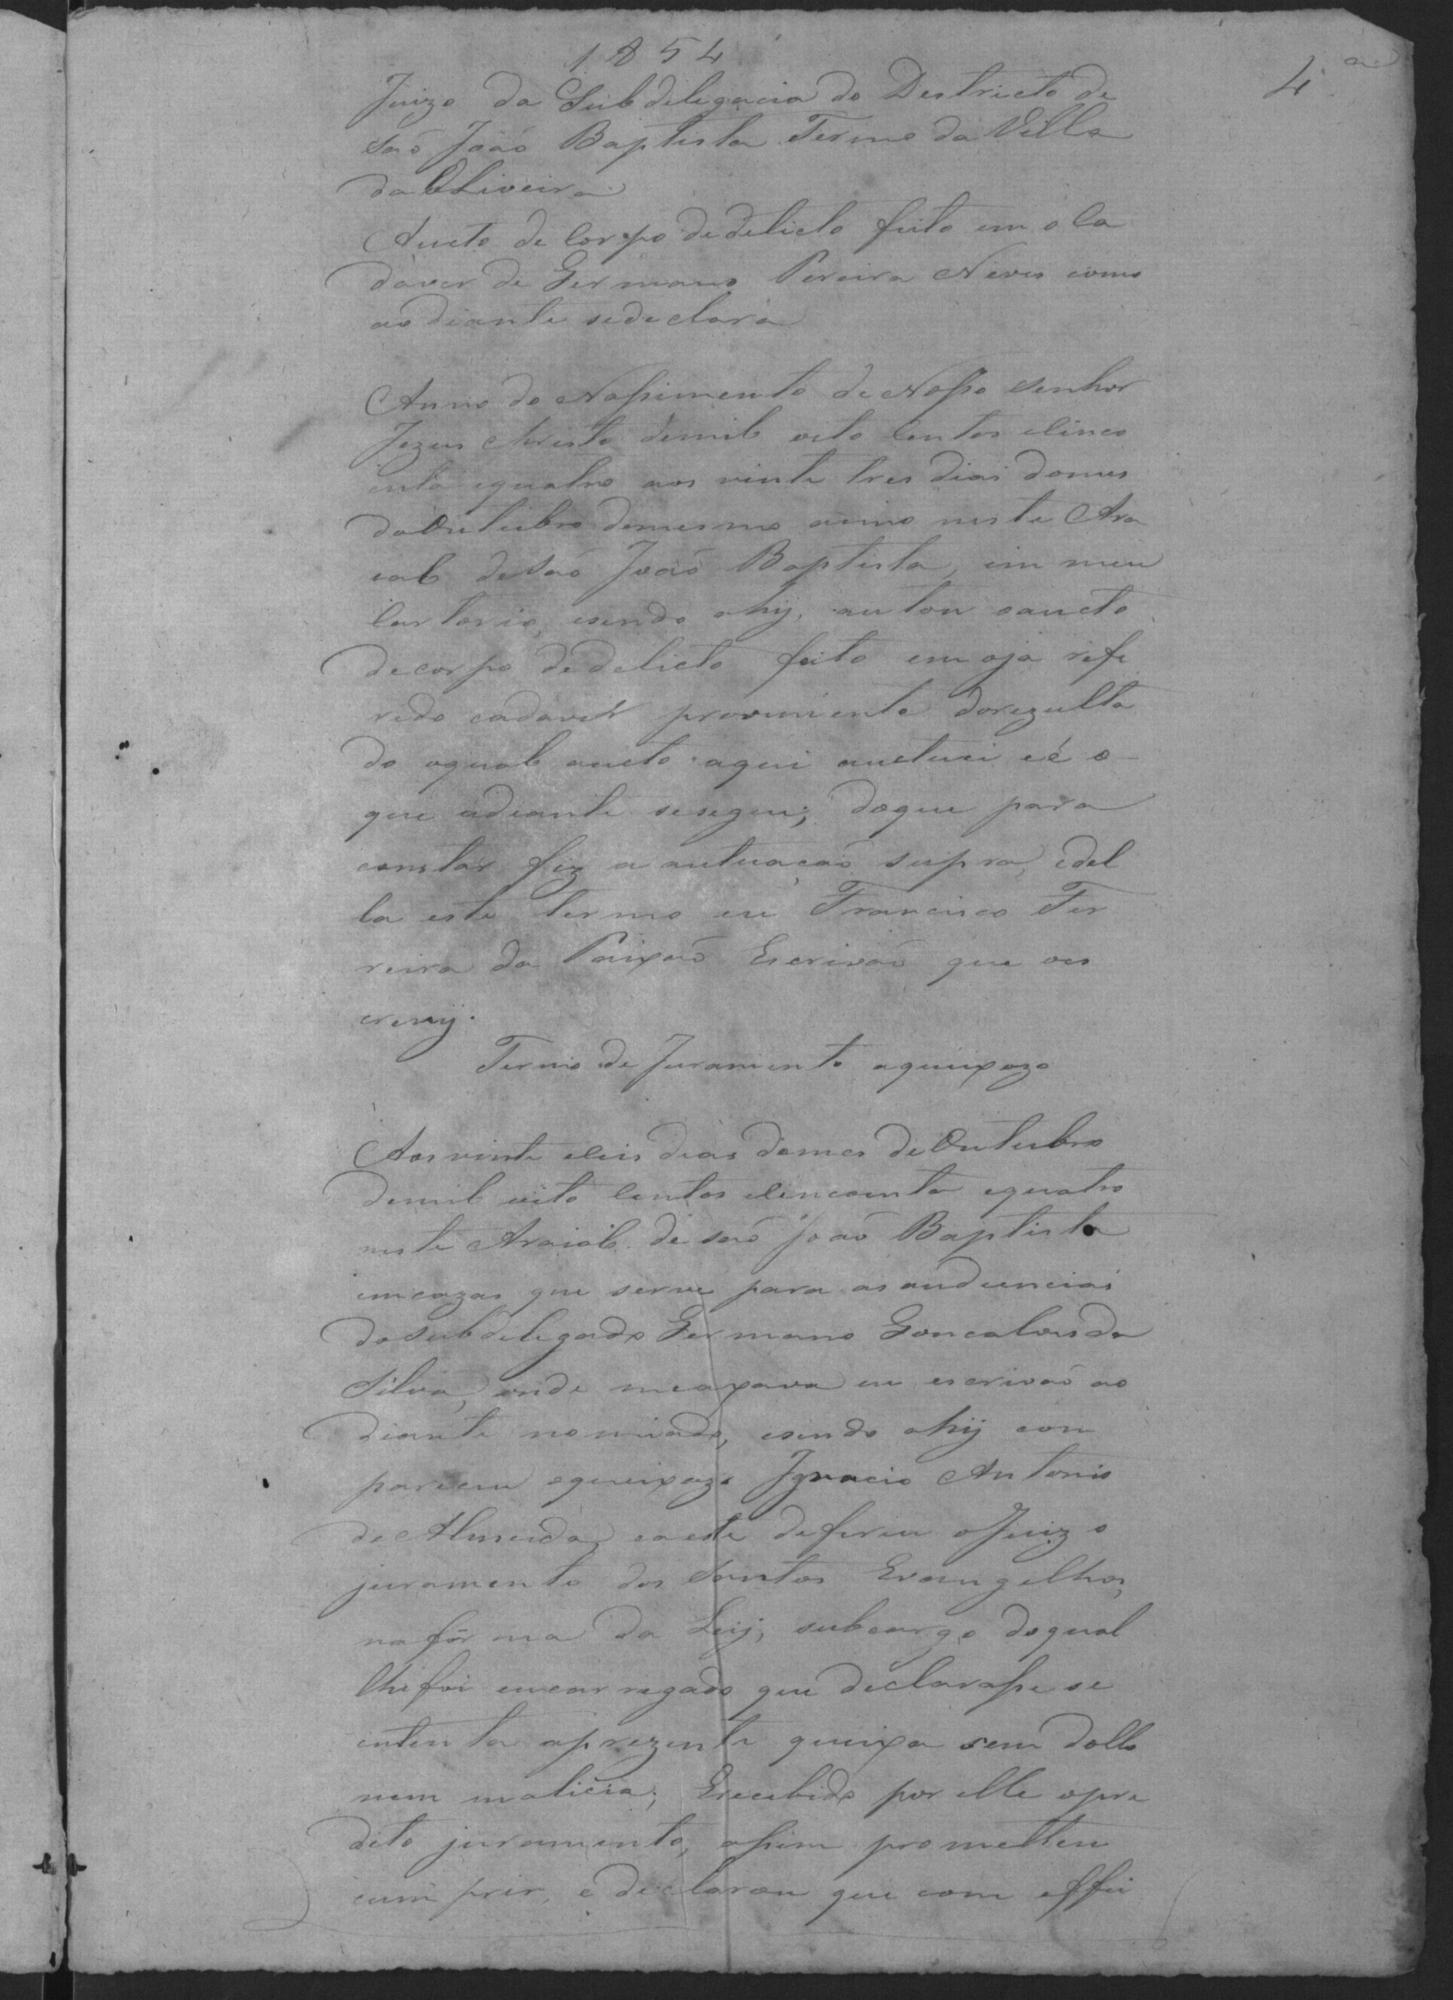 1854
4
Juizo da Subdelegacia do Destricto de
São João Baptista Termo da Villa
da Oliveira
Aucto de Corpo de delicto feito em o Ca
daver de Germano Pereira Neves como
ao diante sedeclara
Anno do Nassimento de Nosso Senhor
Jezus Christo demil oito Centos e Cinco
enta equatro aos vinte tres dias domes
deOutubro domesmo anno neste Ara
ial de São João Baptista, em meu
Cartorio, esendo ahÿ, autou oaucto
decorpo de delicto feito em oja refe
rido cadaver proviniente dorezulta
do oqual aucto aqui auctuei eé o
que adeante sesegue; doque para
constar fiz a autuação supra, edel
la este termo eu Francisco Fer
reira da Paixão Escrivão que oes
crevÿ.
Termo de Juramento aqueixozo
Aos vinte eseis dias domes de Outubro
demil oito Centos eCincoenta equatro
neste Araial de São João Baptista
emcazas que serve para as audiencias
dosubdelegado Germano Goncalves da
Silva, onde meaxava eu escrivão ao
diante nomiado, esendo ahÿ com
pareceu oqueixozo Ignacio Antonio
de Almeida, eaeste deferiu oJuiz o
juramento dos Santos Evangelhos,
nafórma da Leÿ, subcargo doqual
lhefoi encarregado que declarasse se
intenta aprezente queixa sem dollo
nem malicia; Erecebido por elle opre
dito juramento, assim prometteu
cumprir, e declarou que com effei